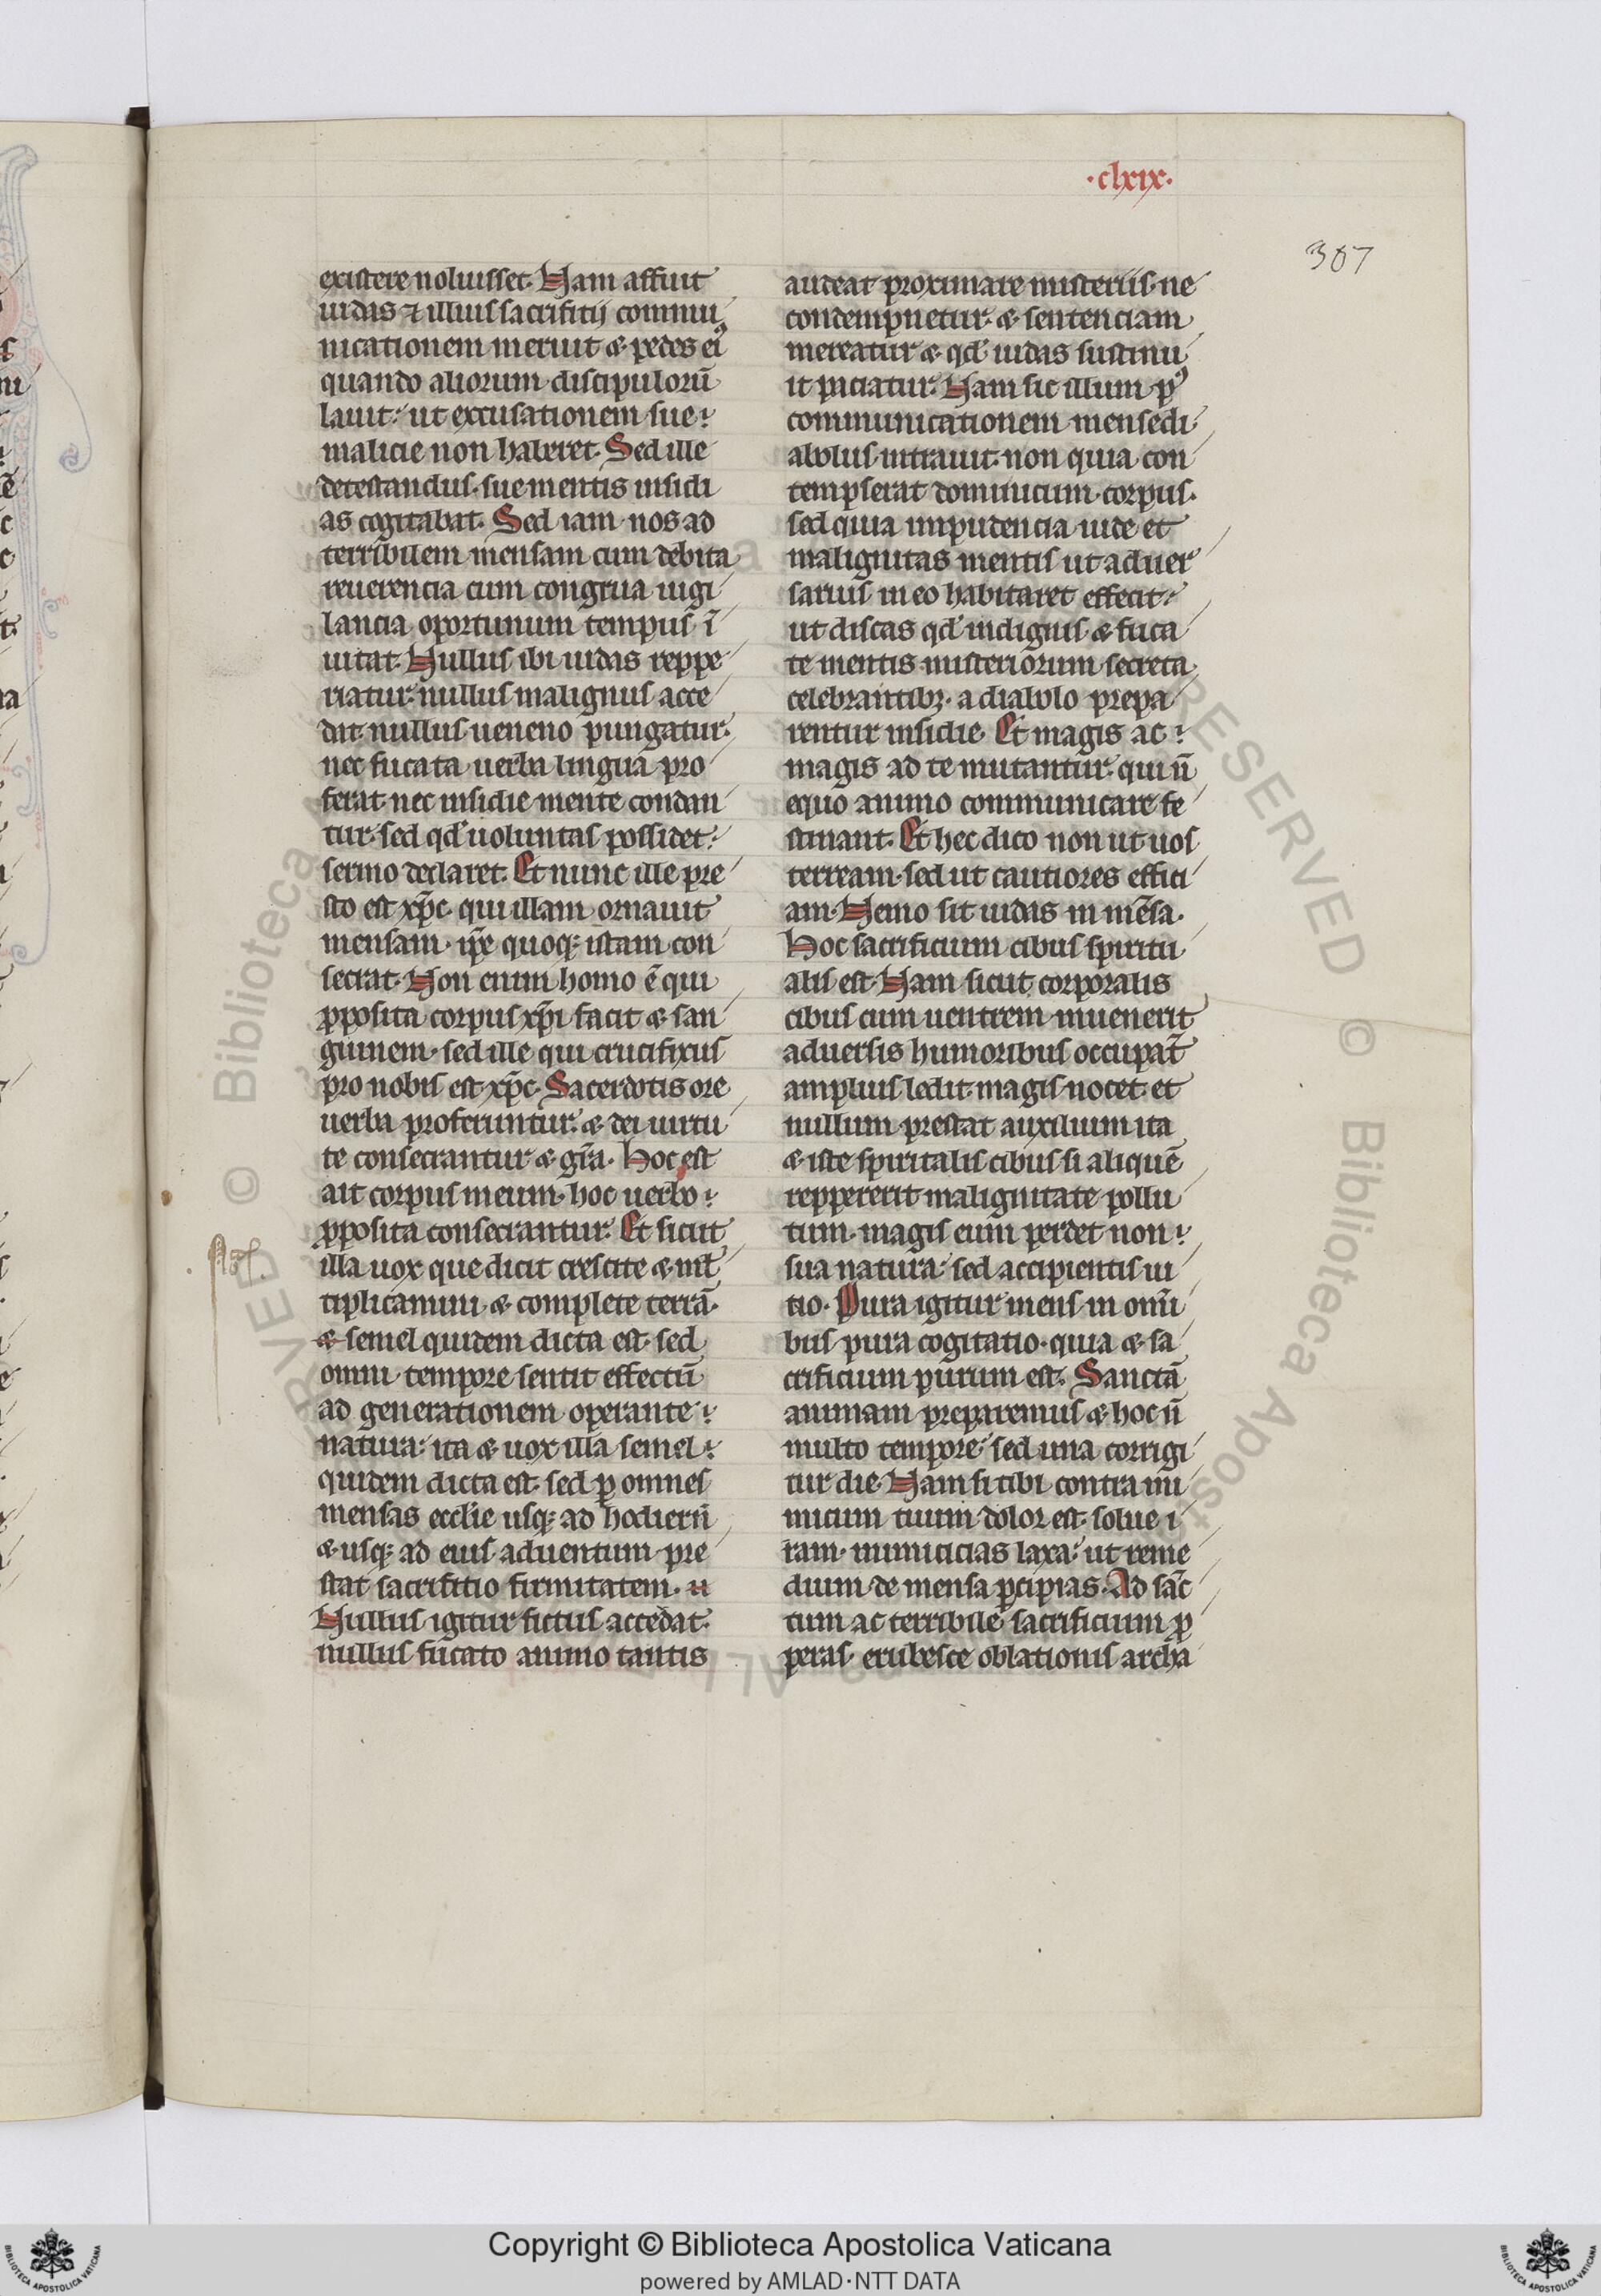 ·clxix·
307
existere noluisset. Nam affuit
iudas ⁊ illius sacrifitij commu
nicationem meruit & pedes eiꝰ
quando aliorum discipulorū
lauit: ut excusationem sue
malicie non haberet. Sed ille
detestandus sue mentis insidi
as cogitabat. Sed iam nos ad
terribilem mensam cum debita
reuerencia cum congrua uigi
lancia oportunum tempus ī
uitat. Nullus ibi iudas reppe
riatur. nullus malignus acce
dat. nullus ueneno pungatur.
nec fucata uerba lingua pro
ferat. nec insidie mente condan
tur. sed qd̕ uoluntas possidet:
sermo declaret. Et nunc ille pre
sto est xp̄c qui illam ornauit
mensam. ip̄e quoq; istam con
secrat. Non enim homo ē qui
ꝓposita corpus xp̄i facit & san
guinem. sed ille qui crucifixus
pro nobis est xp̄c. Sacerdotis ore
uerba proferuntur: & dei uirtu
te consecrantur & gr̄a. Hoc est
ait corpus meum. hoc uerbo
ꝓposita consecrantur. Et sicut
illa uox que dicit crescite & ml̄
tiplicamini & complete terrā.
& semel quidem dicta est. sed
omni tempore sentit effectū
ad generationem operante
natura: ita & uox illa semel
quidem dicta est. sed ꝑ omnes
mensas eccl̄ie usq; ad hodiern̄
& usq; ad eius aduentum pre
stat sacrifitio firmitatem. n
Nullus igitur fictus accedat.
nullus fucato animo tantis
Not.
audeat proximare misteriis. ne
condempnetur. & sentenciam
mereatur & qd̕ iudas sustinu
it paciatur. Nam sic illum pꝰ
communicationem mense di
abolus intrauit. non quia con
tempserat dominicum corpus.
sed quia impudencia iude et
malignitas mentis ut aduer
sarius in eo habitaret effecit:
ut discas qd̕ indignis & fuca
te mentis misteriorum secreta
celebrantibꝫ. a diabolo prepa
rentur insidie. Et magis ac
magis ad te mutantur. qui n̄
equo animo communicare fe
stinant. Et hec dico non ut uos
terream. sed ut cautiores effici
am. Nemo sit iudas in mēsa.
Hoc sacrificium cibus spiritu
alis est. Nam sicut corporalis
cibus cum uentrem inuenerit
aduersis humoribus occupat̄
amplius ledit. magis nocet. et
nullum prestat auxilium ita
& iste spiritalis cibus si aliquē
reppererit malignitate pollu
tum. magis eum perdet non
sua natura: sed accipientis ui
tio. Pura igitur mens in omni
bus pura cogitatio. quia & sa
crificium purum est. Sanctā
animam preparemus & hoc n̄
multo tempore: sed una corrigi
tur die. Nam si tibi contra ini
micum tuum dolor est. solue i
ram. inimicicias laxa: ut reme
dium de mensa ꝑcipias. Ad sāc
tum ac terribile sacrificium ꝓ
peras. erubesce oblationis archa
Copyright © Biblioteca Apostolica Vaticana
powered by AMLAD·NTT DATA